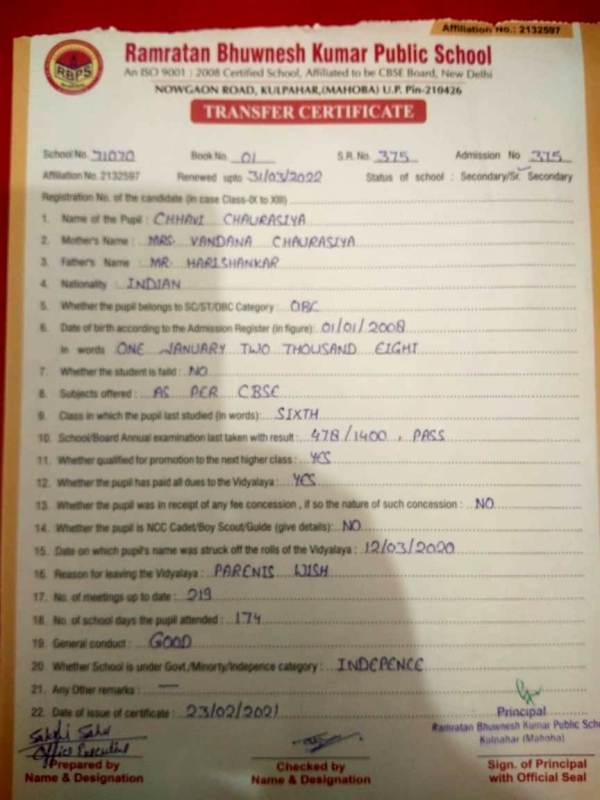 Affiliation No.: 2132597
RBPS
Ramratan Bhuwnesh Kumar Public School
An ISO 9001 : 2008 Certified School, Affiliated to be CBSE Board, New Delhi
NOWGAON ROAD, KULPAHAR,(MAHOBA) U.P. Pin-210426
TRANSFER CERTIFICATE
School No. 71070 Book No. 01 S.R. No. 375 Admission No 375
Affiliation No. 2132597 Renewed upto 31/03/2022 Status of school : Secondary/Sr. Secondary
Registration No. of the candidate (in case Class-IX to XII)
1. Name of the Pupil : CHHAVI CHAURASIYA
2. Mother's Name : MRS. VANDANA CHAURASIYA
3. Father's Name MR HARISHANKAR
4. Nationality : INDIAN
5. Whether the pupil belongs to SC/ST/OBC Category : OBC
6. Date of birth according to the Admission Register (in figure) : 01/01/2008
In words ONE JANUARY TWO THOUSAND EIGHT
7. Whether the student is faild : NO
8. Subjects offered : AS PER CBSE
9. Class in which the pupil last studied (in words): SIXTH
10. School/Board Annual examination last taken with result : 478/1400 , PASS
11. Whether qualified for promotion to the next higher class : YES
12. Whether the pupil has paid all dues to the Vidyalaya : YES
13. Whether the pupil was in receipt of any fee concession , if so the nature of such concession : NO
14. Whether the pupil is NCC Cadet/Boy Scout/Guide (give details): NO
15. Date on which pupil's name was struck off the rolls of the Vidyalaya : 12/03/2020
16. Reason for leaving the Vidyalaya : PARENTS WISH
17. No. of meetings up to date : 219
18. No. of school days the pupil attended : 174
19. General conduct : GOOD
20. Whether School is under Govt./Minorty/Indepence category : INDEPENCE
21. Any Other remarks : —
22. Date of issue of certificate : 23/02/2021
Principal
Ramratan Bhuwnesh Kumar Public Scho
Kulpahar (Mahoba)
Sakshi Sahu
Office Executive
Prepared by
Name & Designation
Checked by
Name & Designation
Sign. of Principal
with Official Seal